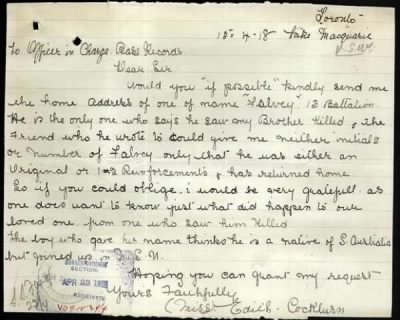 Toronto
12-4-18 Lake Macquarie
N.S.W.
To Officer in Charge Base Records
Dear Sir
Would you "if possible" kindly send me
the home address of one of name "Falvey" 13 Battalion.
He is the only one who says he saw my Brother killed, & the
Friend who he wrote to could give me neither initials
or number of Falvey only that he was either an
Original or 1st Reinforcements & has returned home.
So if you could oblige. i would be very gratefull as
one does want to know just what did happen to our
loved one from one who saw him killed
The boy who gave his name thinks he is a native of S. Australia
but joined up in
Hoping you can grant my request
Yours Faithfully
(Miss) Edith. Cockburn
SECTION.
APR 23 1918
RECEIVED